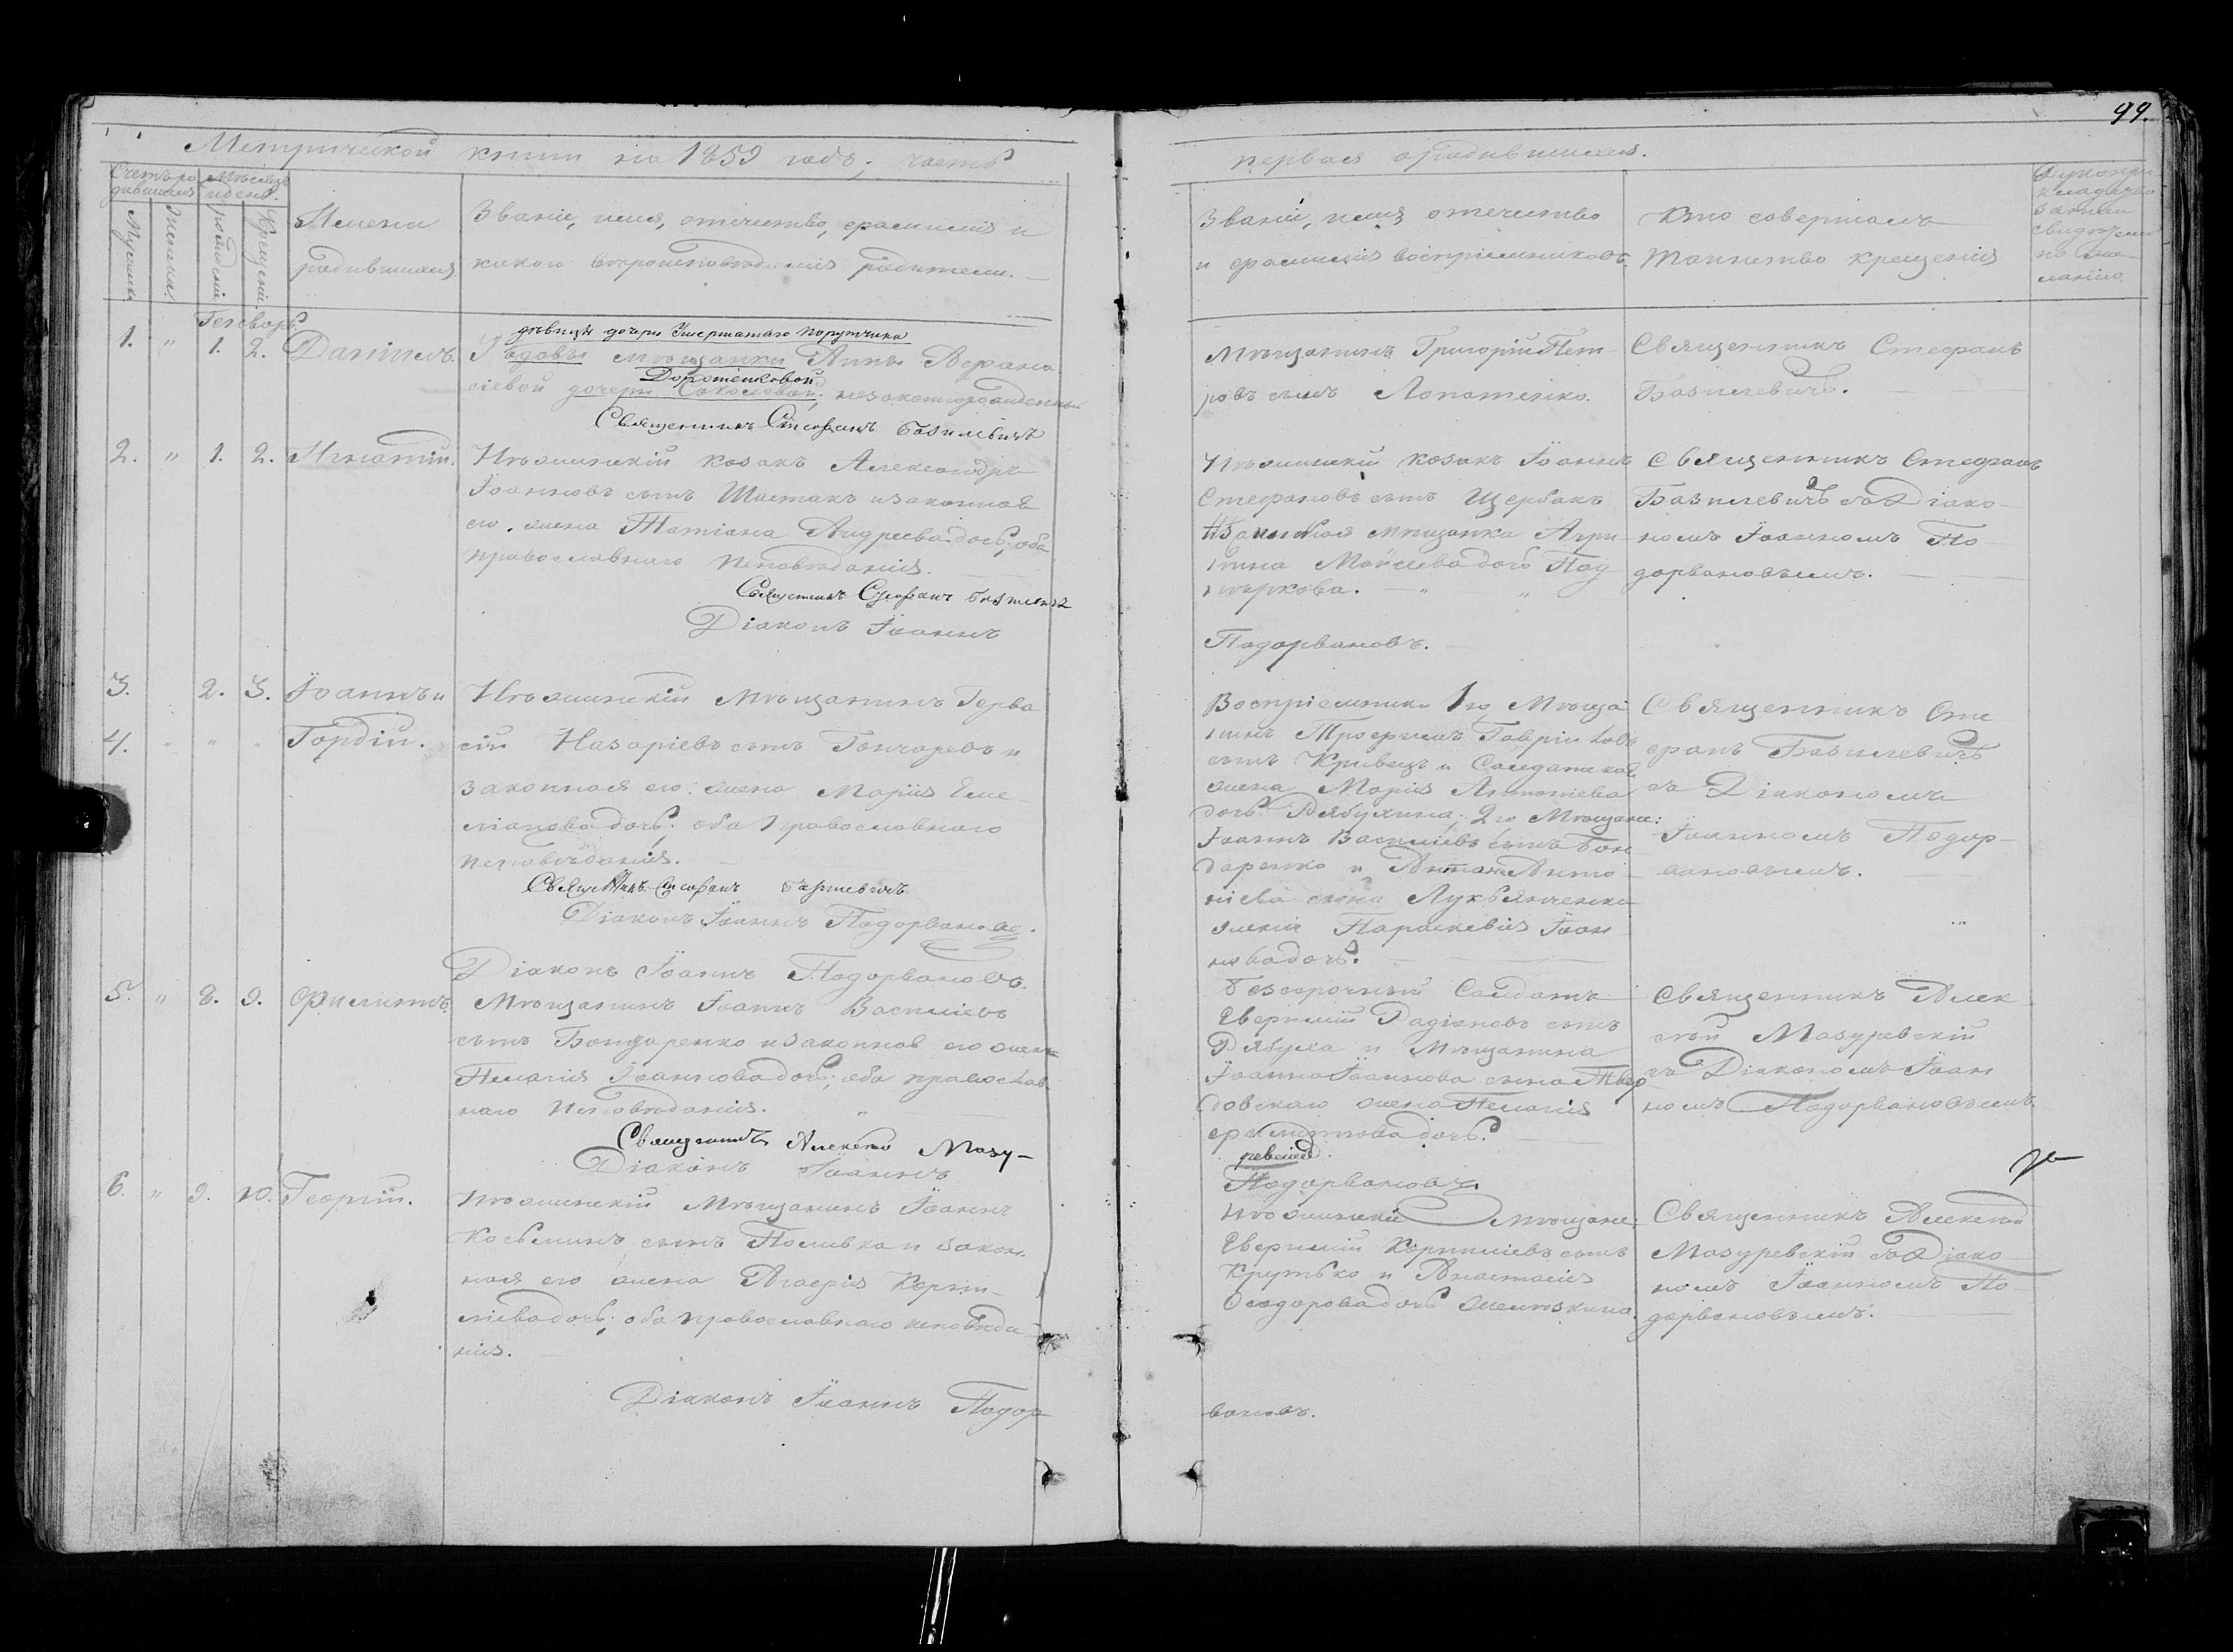 99.
Метрической книги на 1859 годъ, часть
первая о родившихся.
Счетъ ро
дившихся
Мѣсяцъ
и день.
Мужска
Женска.
рожденія
Крещенія.
Имена
родившихся
Званіе, имя, отечество, фамилія и
какого вѣроисповѣданія родители.
Званіе, имя, отечество
и фамилія воспріемниковъ.
Кто совершалъ
таинство крещенія
Рукопри
кладство
свидѣтелей
по же-
ланію.
Генварь
1. " 1. 2. Даніилъ.
дѣвицы дочери Умершаго Порутчика
Вдовы мѣщанки Анны Афана
сіевой дочери Соколовой, незаконнорожденный
Дорошенковой
Священникъ Стефанъ Базилевичъ
Мѣщанинъ Григорій Пет-
ровъ сынъ Лопатенко.
Священникъ Стефанъ
Базилевичъ.
2. " 1. 2. Игнатій.
Нѣжинскій козакъ Александръ
Іоанновъ сынъ Шастакъ и законная
его жена Татіана Андреева дочь; оба
православнаго исповѣданія.
Священникъ Стефанъ Базилевичъ
Діаконъ Іоаннъ
Подорвановъ.
Нѣжинскій козакъ Іоаннъ
Стефановъ сынъ Щербакъ
мѣщанка Агри
пина Мойсѣева дочь Под
Священникъ Стефанъ
Базилевичъ съ Діако-
номъ Іоанномъ По
дорвановымъ.
3. 2. 3. Іоаннъ и
4. " " Гордій.
Нѣжинскій Мѣщанинъ Герва
сій Назаріевъ сынъ Гончаревъ и
законная его жена Марія Еме-
ліанова дочь; оба православнаго
исповѣданія.
Священникъ Стефанъ Базилевичъ
Діаконъ Іоаннъ Подорвановъ.
Воспріемники 1го Мѣща
нинъ Трофимъ Гавріиловъ
сынъ Кривецъ и Салдатская
жена Марія Антоніева
дочь Рябухина; 2го Мѣщане:
Іоаннъ Василіевъ сынъ Бон
даренко и Антона Анто
ніева сына Лукьянченка
жена Параскевія Іоан
нова дочь.
Священникъ Сте
фанъ Базилевичъ
съ Діакономъ
Іоанномъ Подор-
вановымъ.
Діаконъ Іоаннъ Подорвановъ.
5. " 8. 9. Филиппъ.
Мѣщанинъ Іоаннъ Василіевъ
сынъ Бондаренко и законная его жена
Пелагія Іоаннова дочь; оба православ-
наго исповѣданія.
Священникъ Алексѣй Мазу-
ревскій
Діаконъ Іоаннъ
Подорвановъ.
Безсрочный Салдатъ
Евфимій Радіоновъ сынъ
Рябуха и Мѣщанина
Іоанна Іоаннова сына Твер
довскаго жена Пелагія
Филиппова дочь.
Священникъ Алек
сѣй Мазуревскій
съ Діакономъ Іоан
номъ Подорвановымъ.
6. " 9. 10. Георгій.
Нѣжинскій Мѣщанинъ Іоаннъ
Косьминъ сынъ Поливка и закон-
ная его жена Агафія Корни-
ліева дочь; оба православнаго исповѣда
нія.
Діаконъ Іоаннъ Подор
вановъ.
Нѣжинскіе Мѣщане:
Евфимій Корниліевъ сынъ
Крутько и Анастасія
Ѳеодорова дочь
Священникъ Алексѣй
Мазуревскій съ Діако
номъ Іоанномъ По-
дорвановымъ.